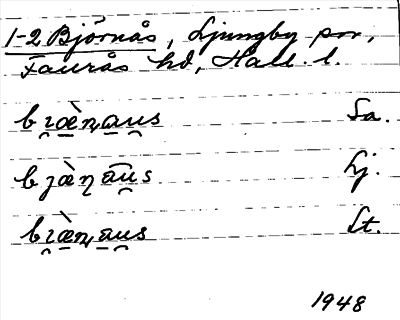 1-2 Björnås, Ljungby sn,
Faurås hd, Hall. l.
bɪ̯æ̀ɳau̯s Sa.
bjæ̀ɳāu̯s Lj.
bɪ̯æ̀ɳau̯s St.
1948